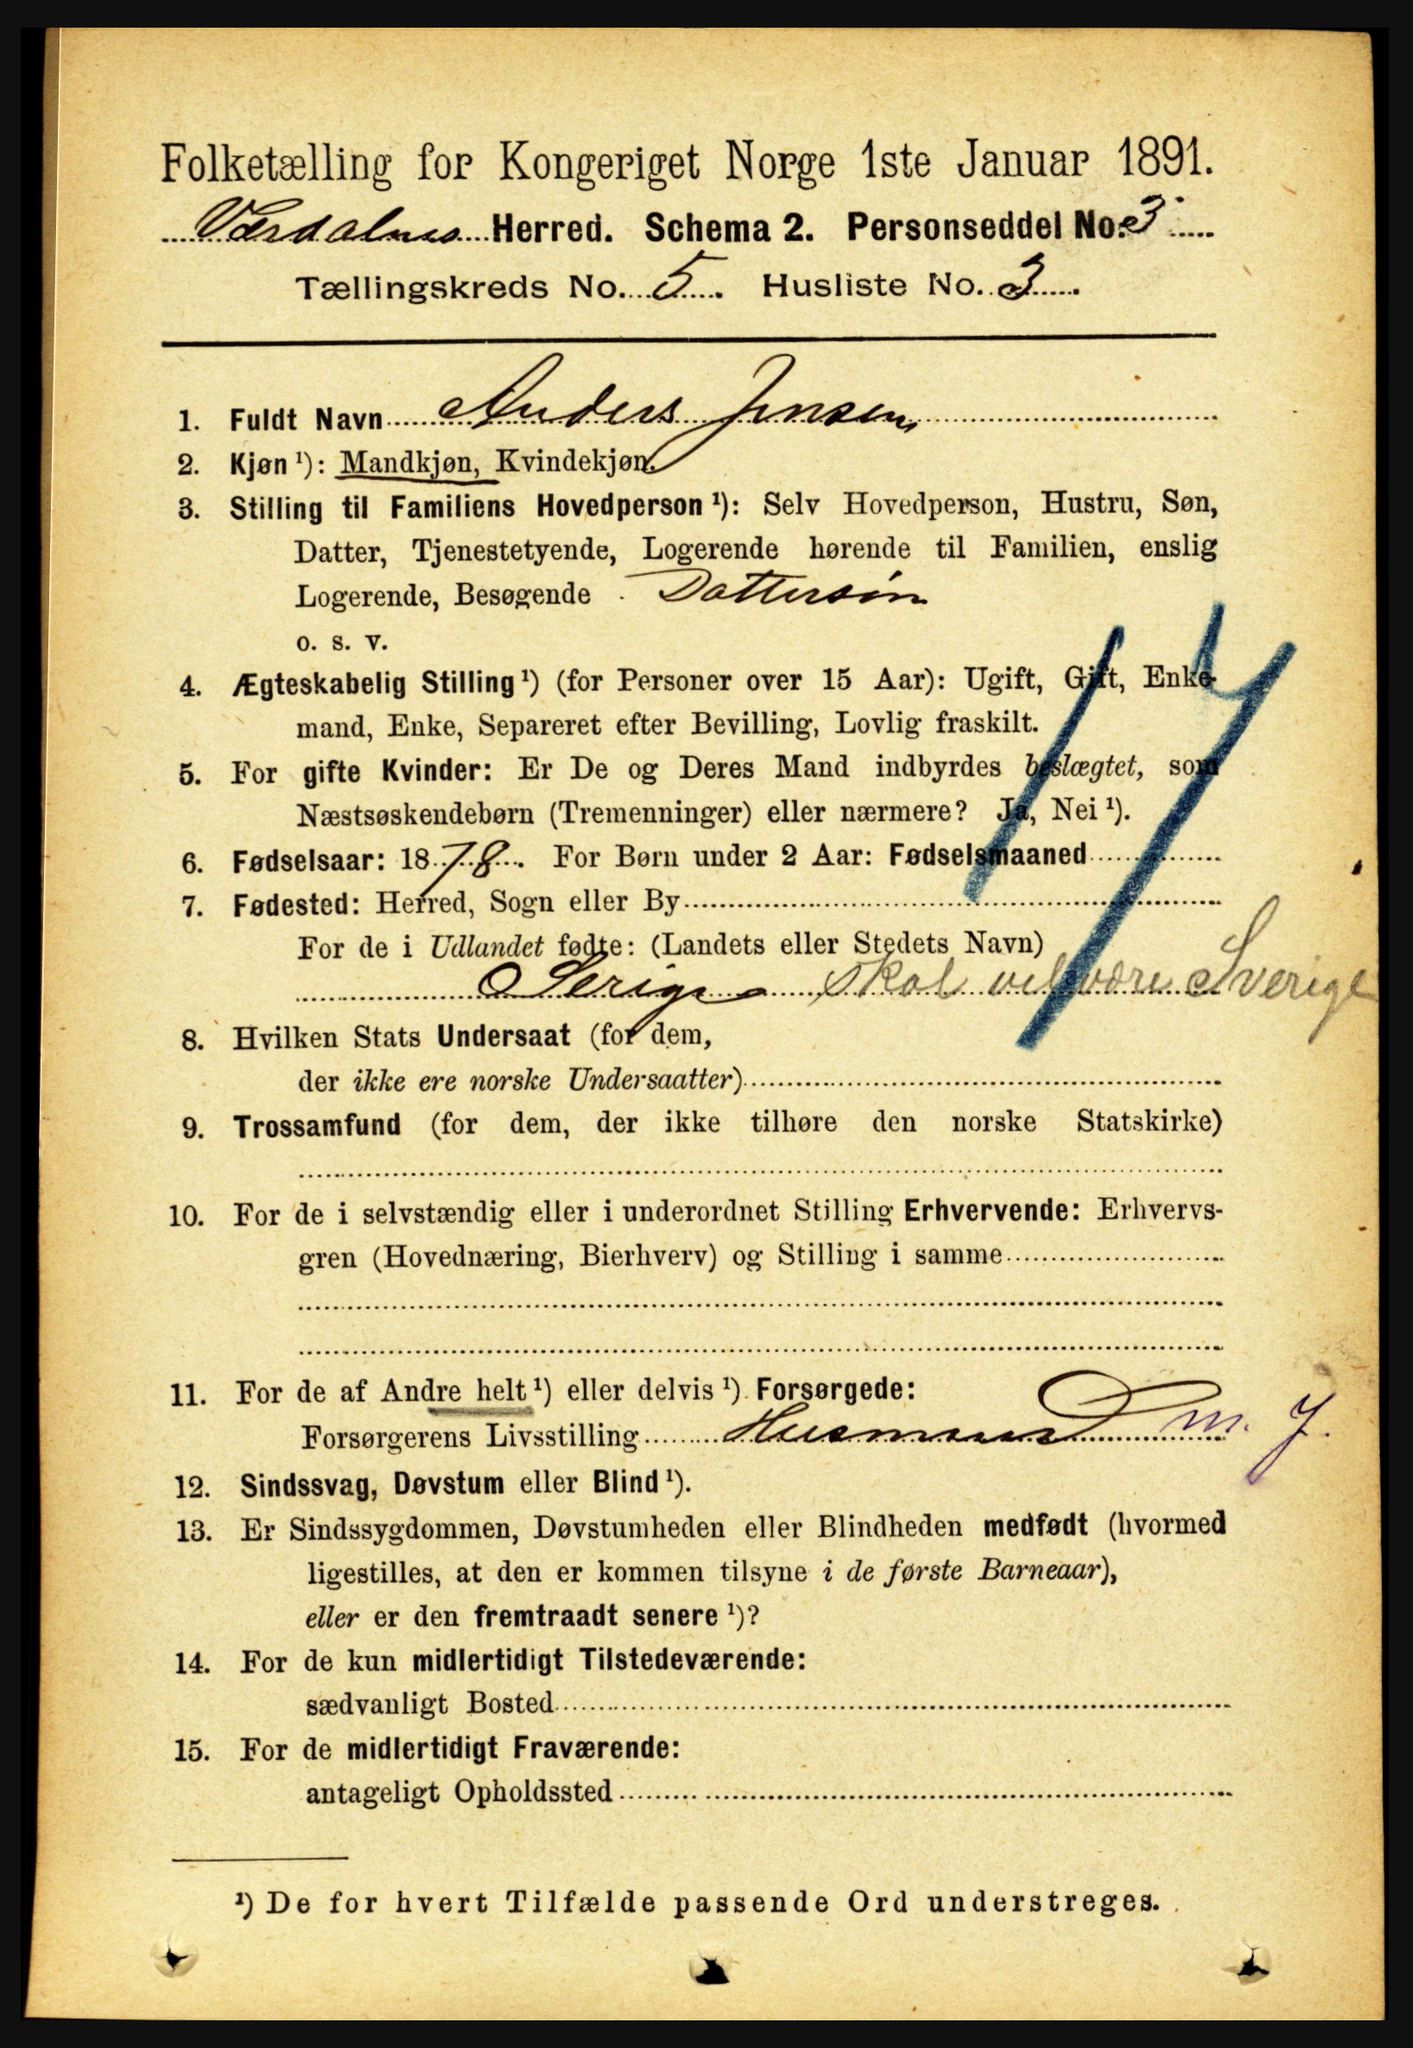 Folketælling for Kongeriget Norge 1ste Januar 1891.
Værdalens Herred. Schema 2. Personseddel No. 3
Tællingskreds No. 5. Husliste No. 3.
1. Fuldt Navn Anders Jensen,
2. Kjøn ¹): Mandkjøn, Kvindekjøn.
3. Stilling til Familiens Hovedperson ¹): Selv Hovedperson, Hustru, Søn,
Datter, Tjenestetyende, Logerende hørende til Familien, enslig
Logerende, Besøgende . Dattersøn
o. s. v.
4. Ægteskabelig Stilling ¹) (for Personer over 15 Aar): Ugift, Gift, Enke-
mand, Enke, Separeret efter Bevilling, Lovlig fraskilt.
5. For gifte Kvinder: Er De og Deres Mand indbyrdes beslægtet, som
Næstsøskendebørn (Tremenninger) eller nærmere? Ja, Nei ¹).
6. Fødselsaar: 1878. For Børn under 2 Aar: Fødselsmaaned
7. Fødested: Herred, Sogn eller By
For de i Udlandet fødte: (Landets eller Stedets Navn)
Serige skal vel være Sverige
8. Hvilken Stats Undersaat (for dem,
der ikke ere norske Undersaatter)
9. Trossamfund (for dem, der ikke tilhøre den norske Statskirke)
10. For de i selvstændig eller i underordnet Stilling Erhvervende: Erhvervs-
gren (Hovednæring, Bierhverv) og Stilling i samme
11. For de af Andre helt ¹) eller delvis ¹) Forsørgede:
Forsørgerens Livsstilling Husmand m. J.
12. Sindssvag, Døvstum eller Blind ¹).
13. Er Sindssygdommen, Døvstumheden eller Blindheden medfødt (hvormed
ligestilles, at den er kommen tilsyne i de første Barneaar),
eller er den fremtraadt senere ¹)?
14. For de kun midlertidigt Tilstedeværende:
sædvanligt Bosted
15. For de midlertidigt Fraværende:
antageligt Opholdssted
¹) De for hvert Tilfælde passende Ord understreges.